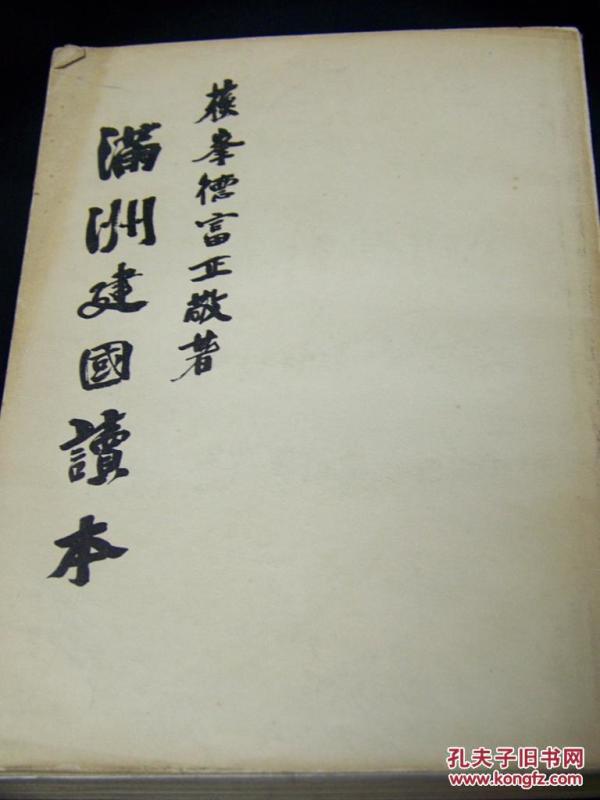 蘇峯德富正敬著
滿洲建國讀本
孔夫子旧书网
www.kongfz.com